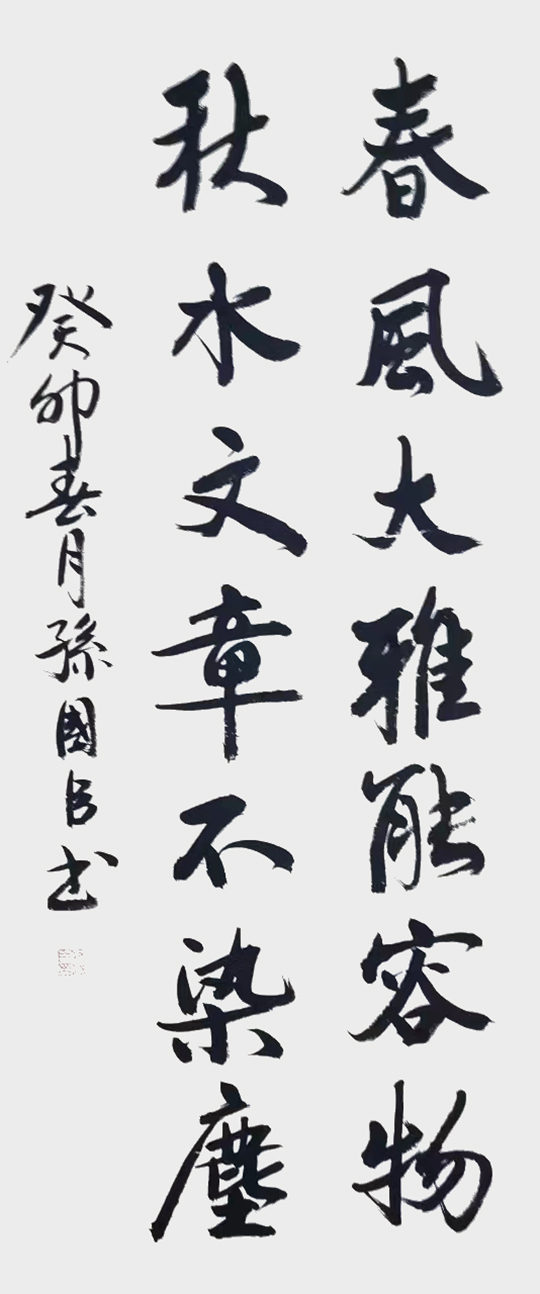 春風大雅能容物
秋水文章不染塵
癸卯春月孫國呂书